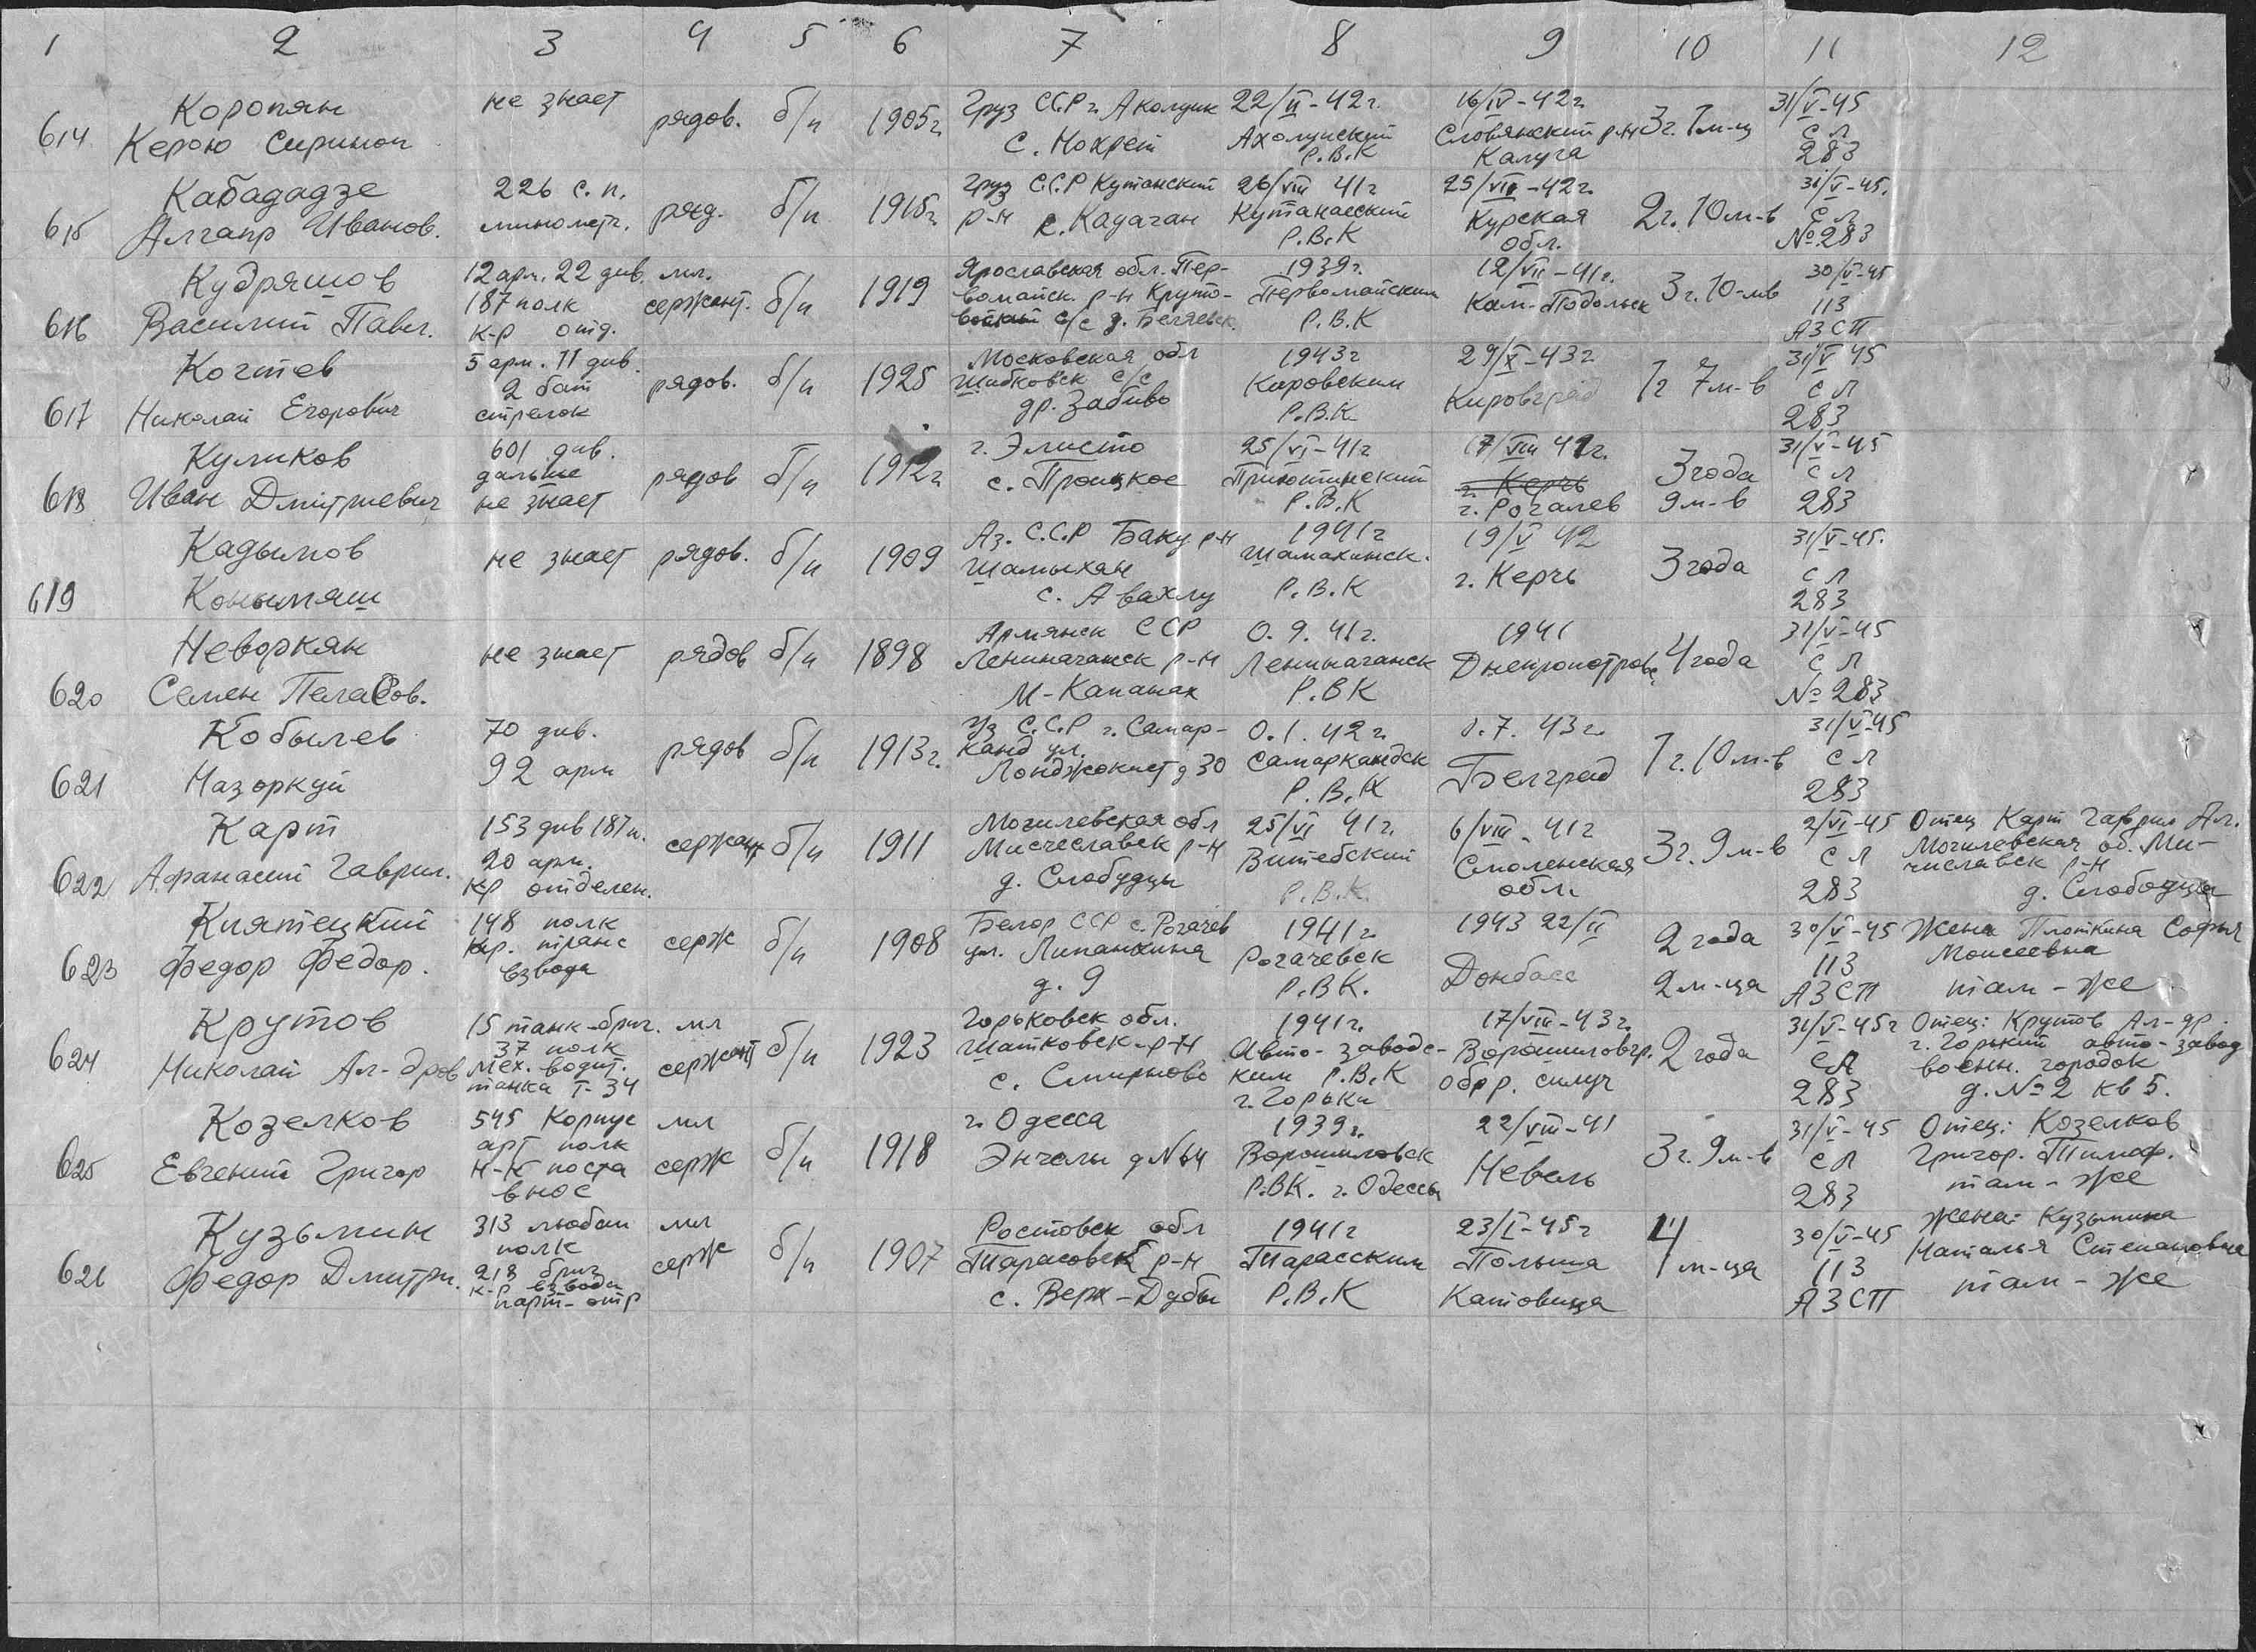 1 2 3 4 5 6 7 8 9 10 11 12
614
Коропян
Керою
не знает
рядов.
б/п
1905г
Груз ССР г.
с. Мохрет
22/II-42г.
Р.В.К
16/IV-42г.
Словянский р-н
Калуга
3г. 1м-ц
31/V-45
СЛ
283
615
Кабададзе
Иванов.
226 с.п.
минометч.
ряд.
б/п
1915г
Груз С.С.Р Кутанский
р-н с. Кадаган
26/VIII 41г
Р.В.К
25/VII-42г.
Курская
обл.
2г. 10м-в
31/V-45.
СЛ
№283
616
Кудряшов
Василий Павл.
12арм. 22 див.
187 полк
к-р отд.
мл.
сержант.
б/п
1919
Ярославская обл. Пер-
вомайск. р-н Круто-
с/с д. Беляевск.
1939г.
Первомайским
Р.В.К
12/VII-41г.
Кам-Подольск
3г. 10-мв
30/V-45
113
АЗСП
617
Когтев
Николай Егорович
5 арм. 11 див.
2 бат
стрелок
рядов.
б/п
1925
Московская обл
Шибковск с/с
др. Забиво
1943г
Кировским
Р.В.К
29/X-43г
Кировград
1г 7м-в
31/V 45
СЛ
283
618
Куликов
Иван Дмитриевич
601 див.
дальше
не знает
рядов
б/п
1912г
г. Элисто
с. Троицкое
25/VI-41г
Приютинский
Р.В.К
17/VIII 41г.
г. Керчь
г. Рогалев
3года
9м-в
31/V-45
СЛ
283
619
Кадымов
не знает
рядов.
б/п
1909
Аз. С.С.Р Баку р-н
Шамыхан
с. Авахлу
1941г
Шамахинск.
Р.В.К
19/V 42
г. Керчь
3года
31/V-45.
СЛ
283
620
Неворкян
Семен
не знает
рядов
б/п
1898
Армянск ССР
Лениначанск р-н
М-Капанах
0. 9. 41г.
Лениначанск
Р.ВК
1941
Днепропетровс.
4года
31/V-45
СЛ
№283
621
Кобылев
Назоркуй
70 див.
92 арм
рядов
б/п
1913г.
Уз С.С.Р г. Самар-
канд ул.
д 30
0. 1. 42г.
Самаркандск
Р.В.К
0. 7. 43г.
Белград
1г. 10м-в
31/V-45
СЛ
283
622
Карт
Афанасий Гаврил.
153 див 187п.
20 арм.
к-р отделен.
сержант
б/п
1911
Могилевская обл
Мисчеславск р-н
д. Слобудцы
25/VI 41г.
Витебский
Р.В.К.
6/VIII-41г
Смоленская
обл.
3г. 9м-в
2/VI-45
СЛ
283
Отец Карт Гаврил Ал.
Могилевская об. Ми-
числавск р-н
д. Слободца
623
Киятецкий
Федор Федор.
148 полк
кр. транс
взвода
серж
б/п
1908
Белор ССР с. Рогачев
ул. Липанкина
д. 9
1941г
Рогачевск
Р.ВК.
1943 22/II
Донбасс
2 года
2м-ца
30/V-45
113
АЗСП
Жена Плоткина Софья
Моисеевна
там-же
624
Крутов
Николай Ал-дров
15 танк-бриг.
37 полк
мех. водит.
танка Т-34
мл
сержант
б/п
1923
Горьковск обл.
Шатковск-р-н
с. Смирново
1941г.
Авто-заводс-
ким Р.В.К
г. Горьки
17/VIII-43г.
Ворошиловгр.
обр
2 года
31/V-45г
СЛ
283
Отец: Крутов Ал-др.
г. Горький авто-завод
воен. городок
д. №2 кв 5.
625
Козелков
Евгений Григор
545 Корпус
арт полк
н-к поста
внос
мл
серж
б/п
1918
г. Одесса
Энчелы д №64
1939г.
Ворошиловск
Р.ВК. г. Одессы
22/VIII-41
Невель
3г. 9м-в
31/V-45
СЛ
283
Отец: Козелков
Григор. Тимоф.
там-же
626
Кузьмин
Федор Дмитри.
313
полк
218 бриг
к-р взвода
парт-отр
мл
серж
б/п
1907
Ростовск обл
Тарасовск р-н
с. Верх-Дубы
1941г
Тарасским
Р.В.К
23/I-45г
Польша
Катовица
4
м-ца
30/V-45
113
АЗСП
Жена: Кузьмина
Наталья Степановна
там-же